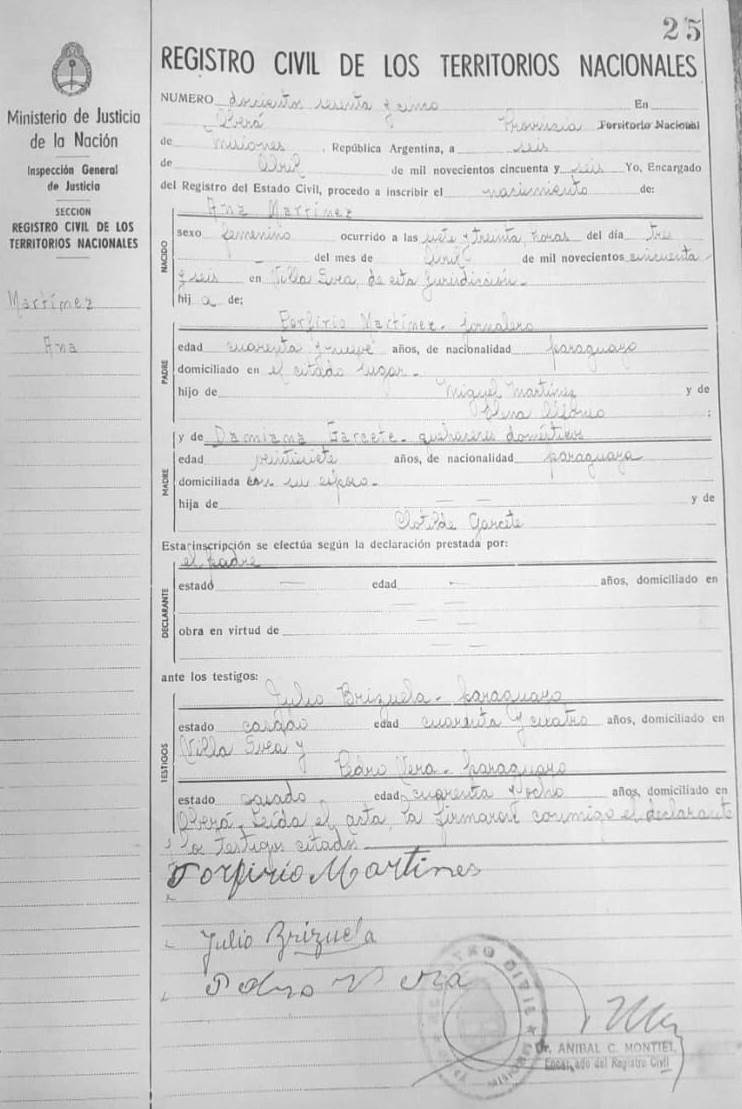 25
Ministerio de Justicia
de la Nación
Inspección General
de Justicia
SECCION
REGISTRO CIVIL DE LOS
TERRITORIOS NACIONALES
Martínez
Ana
REGISTRO CIVIL DE LOS TERRITORIOS NACIONALES
NUMERO doscientos sesenta y cinco En
Oberá Provincia Territorio Nacional
de Misiones, República Argentina, a seis
de Abril de mil novecientos cincuenta y seis Yo, Encargado
del Registro del Estado Civil, procedo a inscribir el nacimiento de:
NACIDO
Ana Martínez
sexo femenino ocurrido a las siete y treinta horas del día tres
del mes de Abril de mil novecientos cincuenta
y seis en Villa Svea, de esta jurisdicción.-
hij a de:
PADRE
Porfirio Martínez.- jornalero
edad cuarenta y nueve años, de nacionalidad paraguayo
domiciliado en el citado lugar.-
hijo de Miguel Martínez y de
;
MADRE
y de Damiana Garcete.- quehaceres domésticos
edad veintisiete años, de nacionalidad paraguaya
domiciliada su esposo.-
hija de — — y de
Clotilde Garcete
Esta inscripción se efectúa según la declaración prestada por:
DECLARANTE
el padre
estado — edad — años, domiciliado en
— —
obra en virtud de — —
— —
ante los testigos:
TESTIGOS
Julio Brizuela.- paraguayo
estado casado edad cuarenta y cuatro años, domiciliado en
Villa Svea y
Pedro Vera.- paraguayo
estado casado edad cuarenta y ocho años, domiciliado en
Oberá. Leída el acta, la firmaron conmigo el declarante
y los testigos citados.
Porfirio Martines
Julio Brizuela
Pedro Vera
REGISTRO CIVIL
Dr. ANIBAL C. MONTIEL
Encargado del Registro Civil